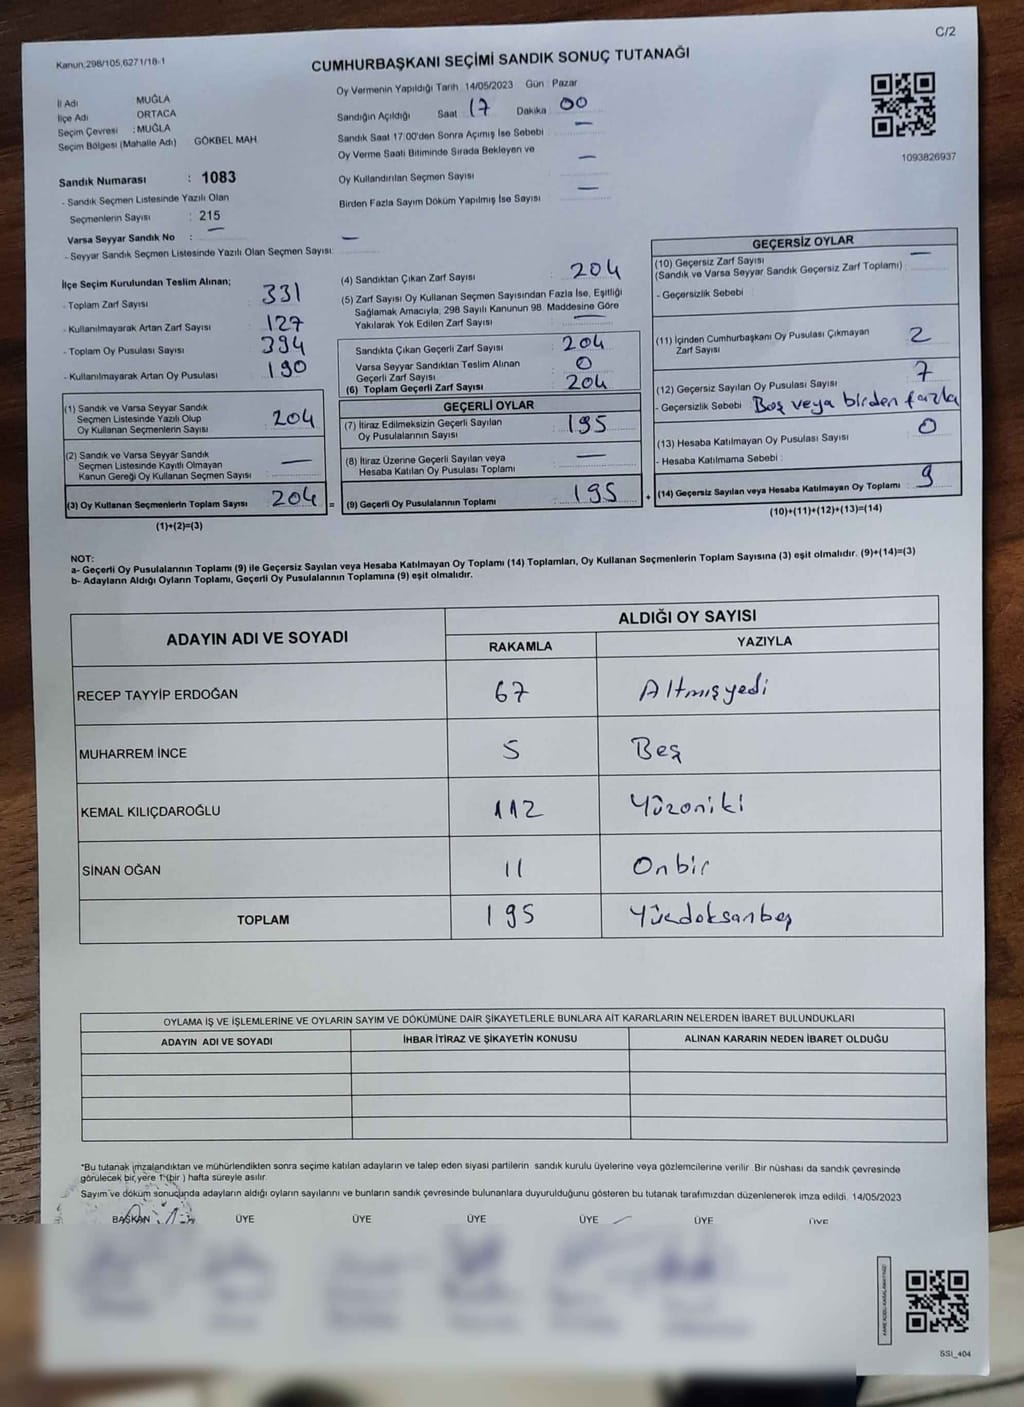 C/2
Kanun,298/105,6271/18-1
CUMHURBAŞKANI SEÇİMİ SANDIK SONUÇ TUTANAĞI
İl Adı MUĞLA
İlçe Adı ORTACA
Seçim Çevresi : MUĞLA
Seçim Bölgesi (Mahalle Adı) GÖKBEL MAH
Oy Vermenin Yapıldığı Tarih 14/05/2023 Gün : Pazar
Sandığın Açıldığı Saat 17 Dakika 00
Sandık Saat 17:00'den Sonra Açımış İse Sebebi —
Oy Verme Saati Bitiminde Sırada Bekleyen ve
Oy Kullandırılan Seçmen Sayısı —
Birden Fazla Sayım Döküm Yapılmış İse Sayısı —
1093826937
Sandık Numarası : 1083
- Sandık Seçmen Listesinde Yazılı Olan
Seçmenlerin Sayısı : 215
Varsa Seyyar Sandık No : —
- Seyyar Sandık Seçmen Listesinde Yazılı Olan Seçmen Sayısı: —
İlçe Seçim Kurulundan Teslim Alınan;
- Toplam Zarf Sayısı 331
- Kullanılmayarak Artan Zarf Sayısı 127
- Toplam Oy Pusulası Sayısı 394
- Kullanılmayarak Artan Oy Pusulası 190
(1) Sandık ve Varsa Seyyar Sandık
Seçmen Listesinde Yazılı Olup
Oy Kullanan Seçmenlerin Sayısı 204
(2) Sandık ve Varsa Seyyar Sandık
Seçmen Listesinde Kayıtlı Olmayan
Kanun Gereği Oy Kullanan Seçmen Sayısı —
(3) Oy Kullanan Seçmenlerin Toplam Sayısı 204 =
(1)+(2)=(3)
(4) Sandıktan Çıkan Zarf Sayısı 204
(5) Zarf Sayısı Oy Kullanan Seçmen Sayısından Fazla İse, Eşitliği
Sağlamak Amacıyla, 298 Sayılı Kanunun 98. Maddesine Göre
Yakılarak Yok Edilen Zarf Sayısı —
Sandıkta Çıkan Geçerli Zarf Sayısı 204
Varsa Seyyar Sandıktan Teslim Alınan
Geçerli Zarf Sayısı 0
(6) Toplam Geçerli Zarf Sayısı 204
GEÇERLİ OYLAR
(7) İtiraz Edilmeksizin Geçerli Sayılan
Oy Pusulalarının Sayısı 195
(8) İtiraz Üzerine Geçerli Sayılan veya
Hesaba Katılan Oy Pusulası Toplamı —
(9) Geçerli Oy Pusulalarının Toplamı 195 +
GEÇERSİZ OYLAR
(10) Geçersiz Zarf Sayısı —
(Sandık ve Varsa Seyyar Sandık Geçersiz Zarf Toplamı)
- Geçersizlik Sebebi :
(11) İçinden Cumhurbaşkanı Oy Pusulası Çıkmayan
Zarf Sayısı 2
(12) Geçersiz Sayılan Oy Pusulası Sayısı 7
- Geçersizlik Sebebi Boş veya birden fazla
(13) Hesaba Katılmayan Oy Pusulası Sayısı 0
- Hesaba Katılmama Sebebi :
(14) Geçersiz Sayılan veya Hesaba Katılmayan Oy Toplamı : 9
(10)+(11)+(12)+(13)=(14)
NOT:
a- Geçerli Oy Pusulalarının Toplamı (9) ile Geçersiz Sayılan veya Hesaba Katılmayan Oy Toplamı (14) Toplamları, Oy Kullanan Seçmenlerin Toplam Sayısına (3) eşit olmalıdır. (9)+(14)=(3)
b- Adayların Aldığı Oyların Toplamı, Geçerli Oy Pusulalarının Toplamına (9) eşit olmalıdır.
ADAYIN ADI VE SOYADI ALDIĞI OY SAYISI
RAKAMLA YAZIYLA
RECEP TAYYİP ERDOĞAN 67 Altmışyedi
MUHARREM İNCE 5 Beş
KEMAL KILIÇDAROĞLU 112 Yüzoniki
SİNAN OĞAN 11 Onbir
TOPLAM 195 Yüzdoksanbeş
OYLAMA İŞ VE İŞLEMLERİNE VE OYLARIN SAYIM VE DÖKÜMÜNE DAİR ŞİKAYETLERLE BUNLARA AİT KARARLARIN NELERDEN İBARET BULUNDUKLARI
ADAYIN ADI VE SOYADI İHBAR İTİRAZ VE ŞİKAYETİN KONUSU ALINAN KARARIN NEDEN İBARET OLDUĞU
*Bu tutanak imzalandıktan ve mühürlendikten sonra seçime katılan adayların ve talep eden siyasi partilerin sandık kurulu üyelerine veya gözlemcilerine verilir. Bir nüshası da sandık çevresinde
görülecek bir yere 1 (bir) hafta süreyle asılır.
Sayım ve döküm sonucunda adayların aldığı oyların sayılarını ve bunların sandık çevresinde bulunanlara duyurulduğunu gösteren bu tutanak tarafımızdan düzenlenerek imza edildi. 14/05/2023
BAŞKAN ÜYE ÜYE ÜYE ÜYE ÜYE ÜYE
SSI_404